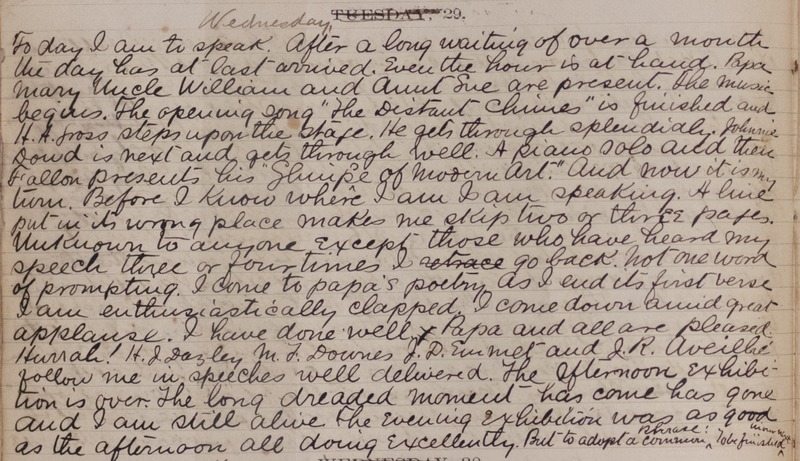 Wednesday
TUESDAY, 29.
To day I am to speak. After a long waiting of over a month
the day has at last arrived. Even the hour is at hand. Papa
mary Uncle William and Aunt Sue are present. The music
begins. The opening song "The Distant Chimes" is finished and
H. A. Gross steps upon the stage. He gets through splendidly. Johnnie
Dowd is next and gets through well. A piano solo and then
Fallon presents his "Glimpse of Modern Art." And now it is my
turn. Before I know where I am I am speaking. A line
put in its wrong place makes me skip two or three pages.
Unknown to anyone except those who have heard my
speech three or four times I retrace go back. Not one word
of prompting. I come to papa's poetry as I end its first verse
I am enthusiastically clapped. I come down amid great
applause. I have done well, Papa and all are pleased.
Hurrah! H. J. Dazley M. J. Downes J. D. Emmet and J. R. Aveilhé
follow me in speeches well delivered. The afternoon exhibi-
tion is over. The long dreaded moment has come has gone
and I am still alive The Evening Exhibition was as good
as the afternoon all doing excellently. But to adopt a common phrase: "To be finished
WEDNESDAY